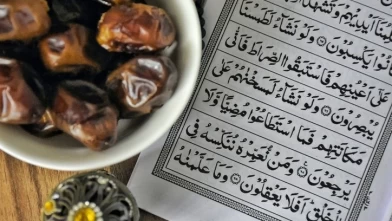 أَيْدِيهِمْ وَتَشْهَدُ
يَكْسِبُونَ ۝ وَلَوْ نَشَاءُ لَطَمَسْنَا
عَلَىٰ أَعْيُنِهِمْ فَاسْتَبَقُوا الصِّرَاطَ فَأَنَّىٰ
يُبْصِرُونَ ۝ وَلَوْ نَشَاءُ لَمَسَخْنَاهُمْ عَلَىٰ
مَكَانَتِهِمْ فَمَا اسْتَطَاعُوا مُضِيًّا وَلَا
يَرْجِعُونَ ۝ وَمَنْ نُعَمِّرْهُ نُنَكِّسْهُ فِي
الْخَلْقِ أَفَلَا يَعْقِلُونَ ۝ وَمَا عَلَّمْنَاهُ